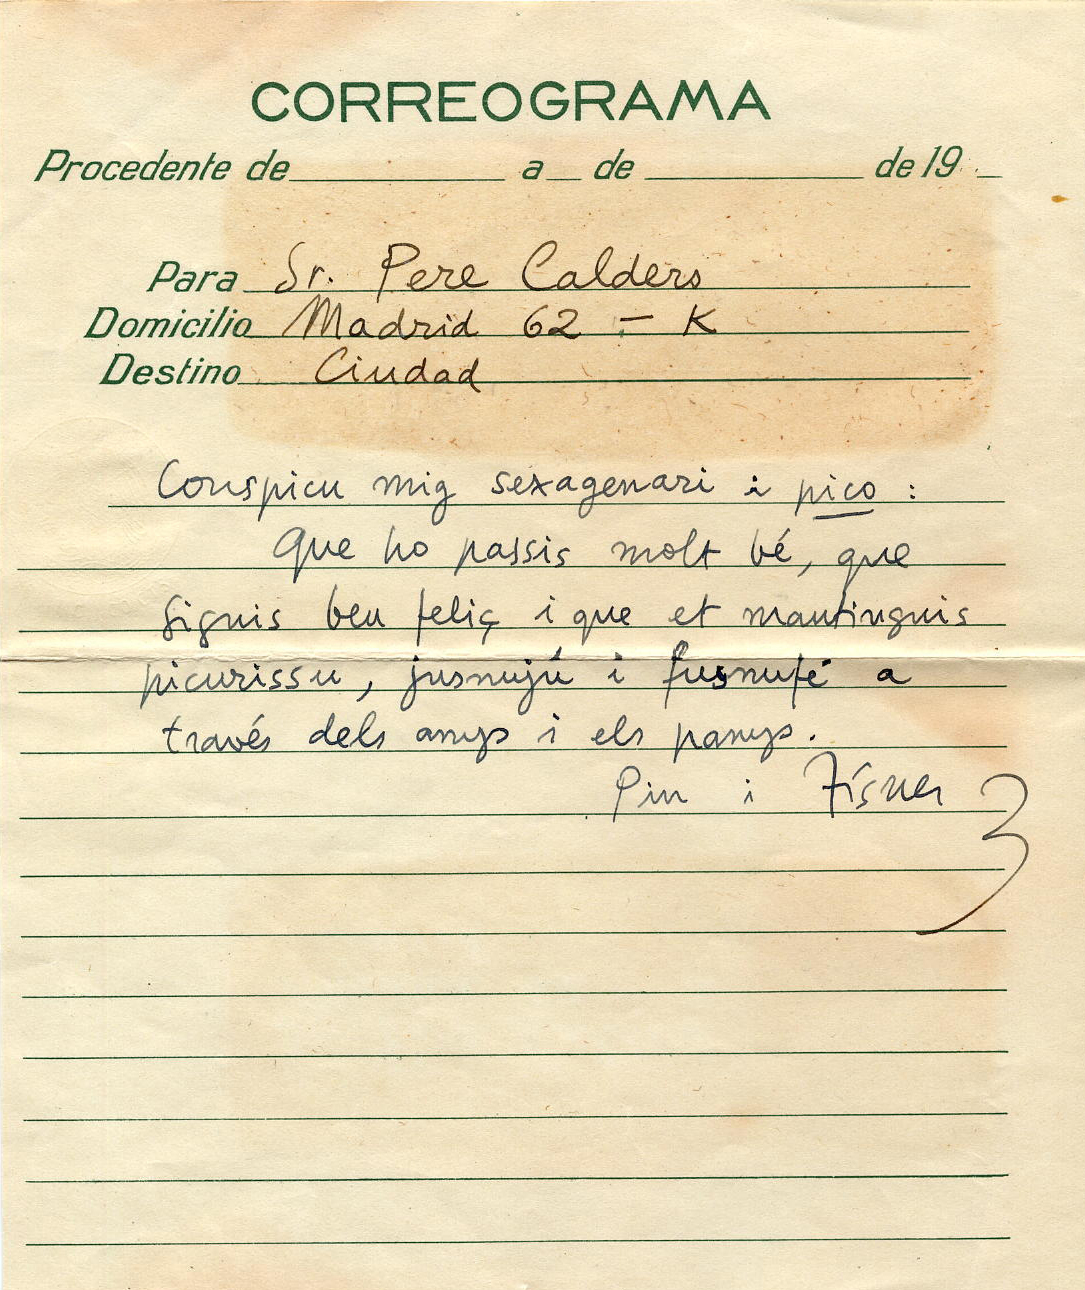 CORREOGRAMA
Procedente de a de de 19
Para Sr. Pere Calders
Domicilio Madrid 62 - K
Destino Ciudad
Conspicu mig sexagenari i pico :
Que ho passis molt bé, que
siguis ben feliç i que et mantinguis
picurissu, jusnujú i fusnufé a
través dels anys i els panys.
Pin i Físner